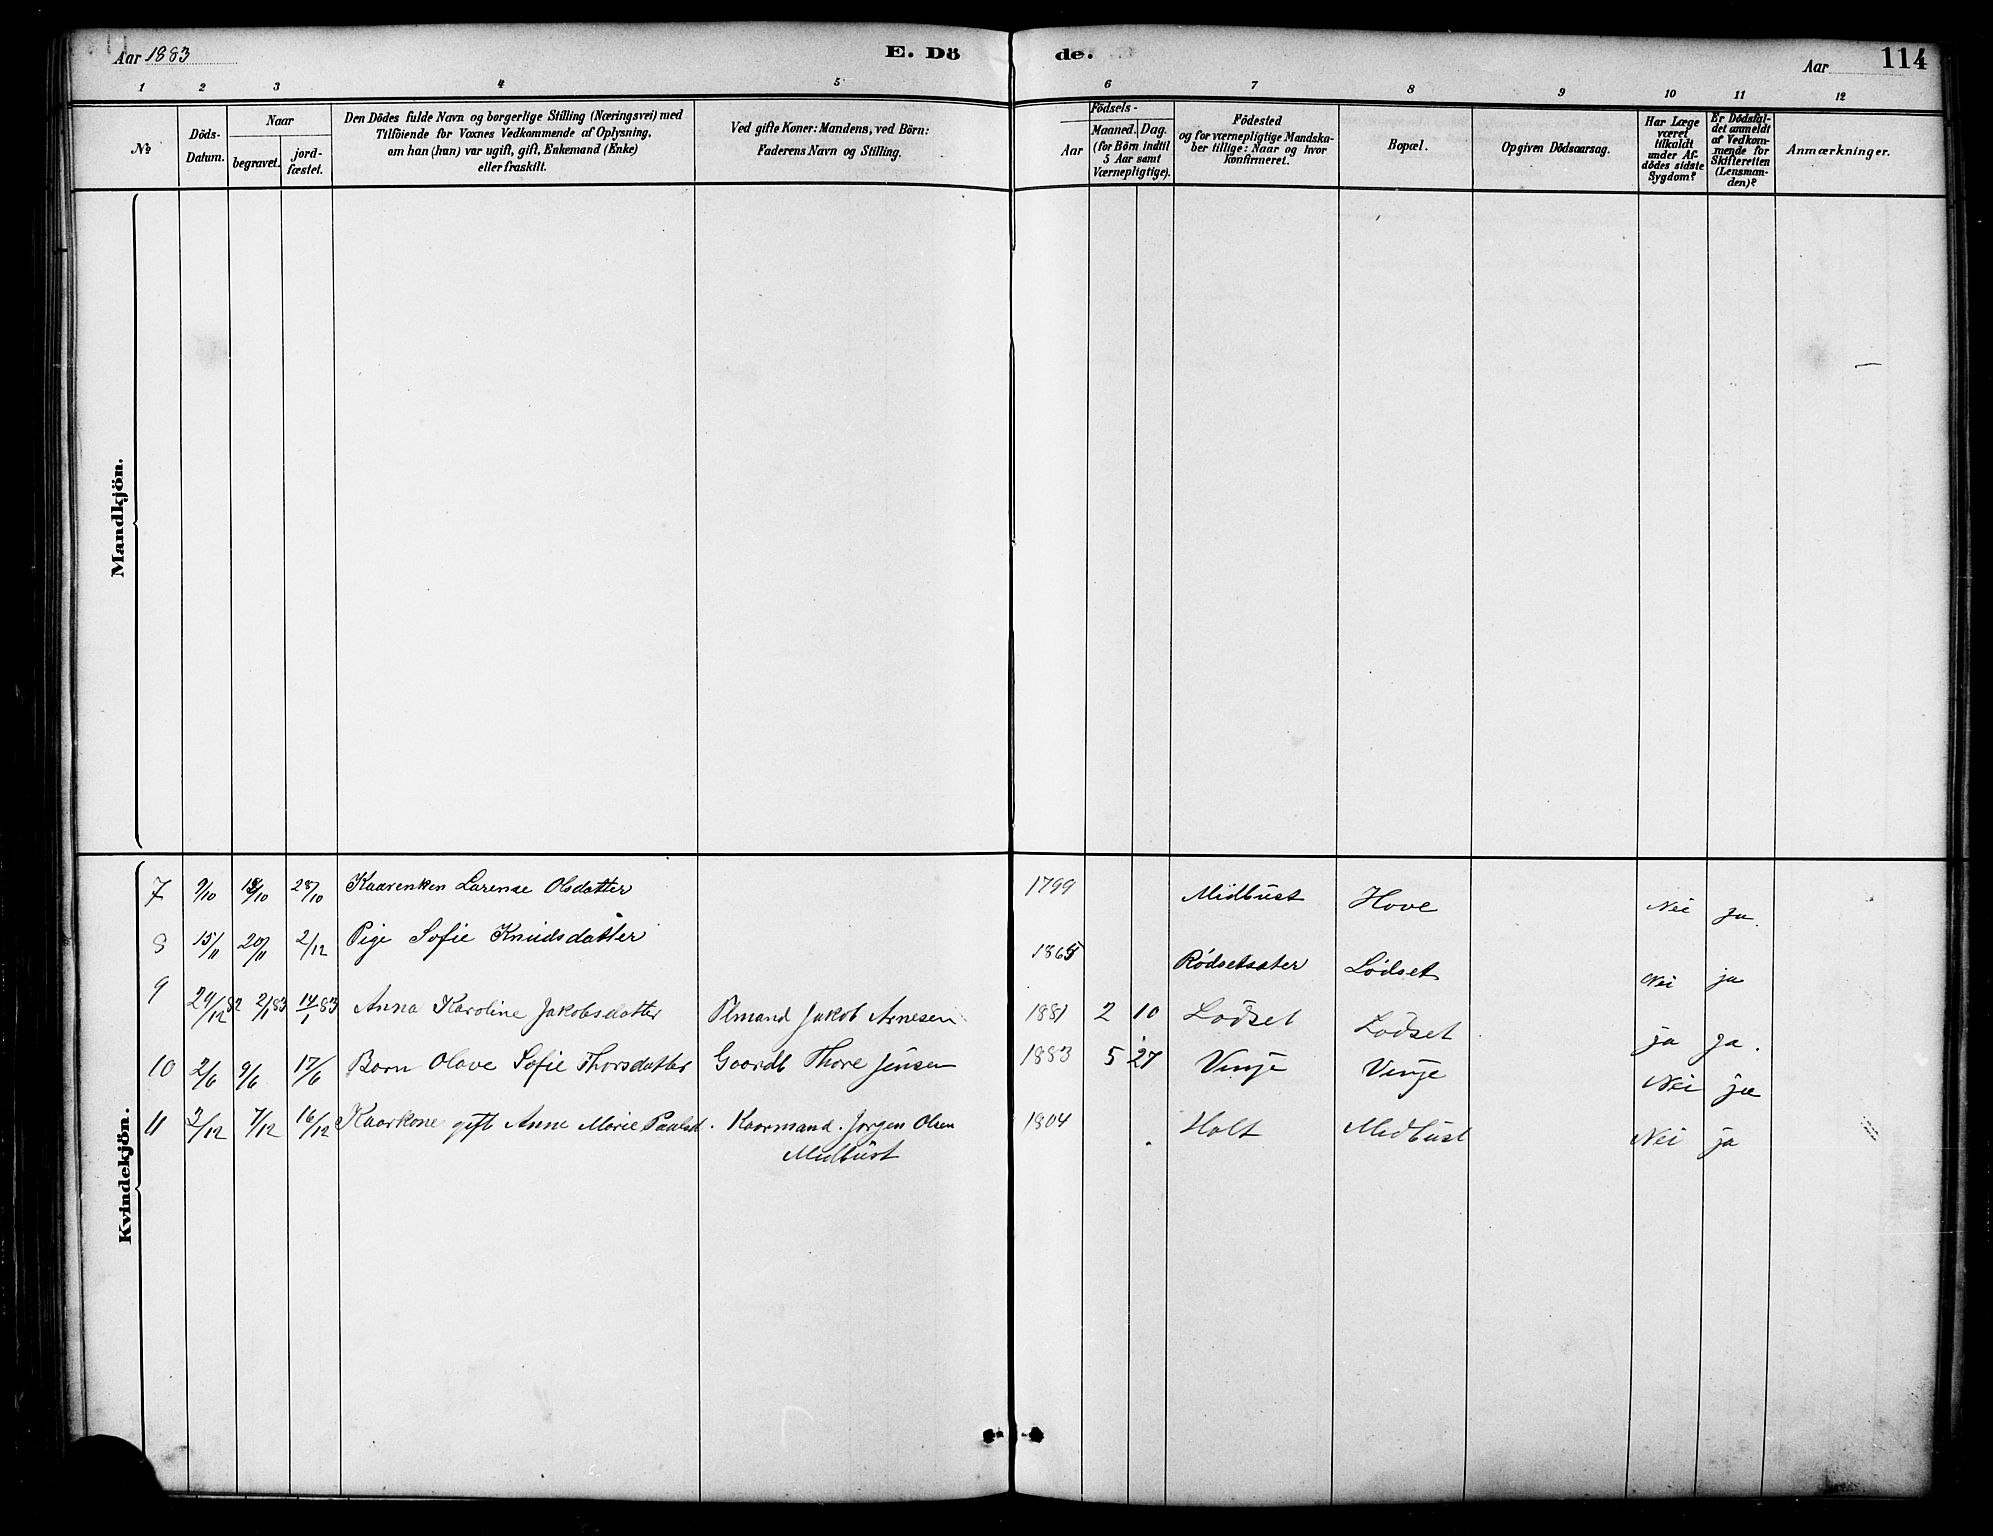 Aar 1883
E. Dö
de.
Aar
114
1 2 3 4 5 6 7 8 9 10 11 12
No
Döds-
Datum.
Naar
begravet.
jord-
fæstet.
Den Dödes fulde Navn og borgerlige Stilling (Næringsvei) med
Tilföiende for Voxnes Vedkommende af Oplysning,
om han (hun) var ugift, gift, Enkemand (Enke)
eller fraskilt.
Ved gifte Koner: Mandens, ved Börn:
Faderens Navn og Stilling.
Födsels-
Aar
Maaned.
Dag.
(for Börn indtil
5 Aar samt
Værnepligtige).
Födested
og for værnepligtige Mandska-
ber tillige: Naar og hvor
konfirmeret.
Bopæl.
Opgiven Dödsaarsag.
Har Læge
været
tilkaldt
under Af-
dödes sidste
Sygdom?
Er Dödsfal-
det anmeldt
af Vedkom-
mende for
Skifteretten
(Lensman-
den)?
Anmærkninger.
Mandkjön.
Kvindekjön.
7 9/10 18/10 28/10 Kaarenken Larense Olsdatter 1799 Midbust Hove Nei ja.
8 15/11 20/11 2/12 Pige Sofie Knudsdatter 1865 Rödsetsater Lödset Nei ja
9 29/12 82 2/1 83 14/1 83 Anna Karoline Jakobsdatter Plmand Jakob Arnesen 1881 2 10 Lödset Lödset ja ja.
10 2/6 9/6 17/6 Barn Olave Sofie Thorsdatter Gaardb Thore Jensen 1883 5 27 Vinje Vinje Nei ja
11 3/12 7/12 16/12 Kaarkone gift Anne Marie Paulsd. Kaarmand. Jørgen Olsen 1804 Holt Midbust Nei ja
Midbust